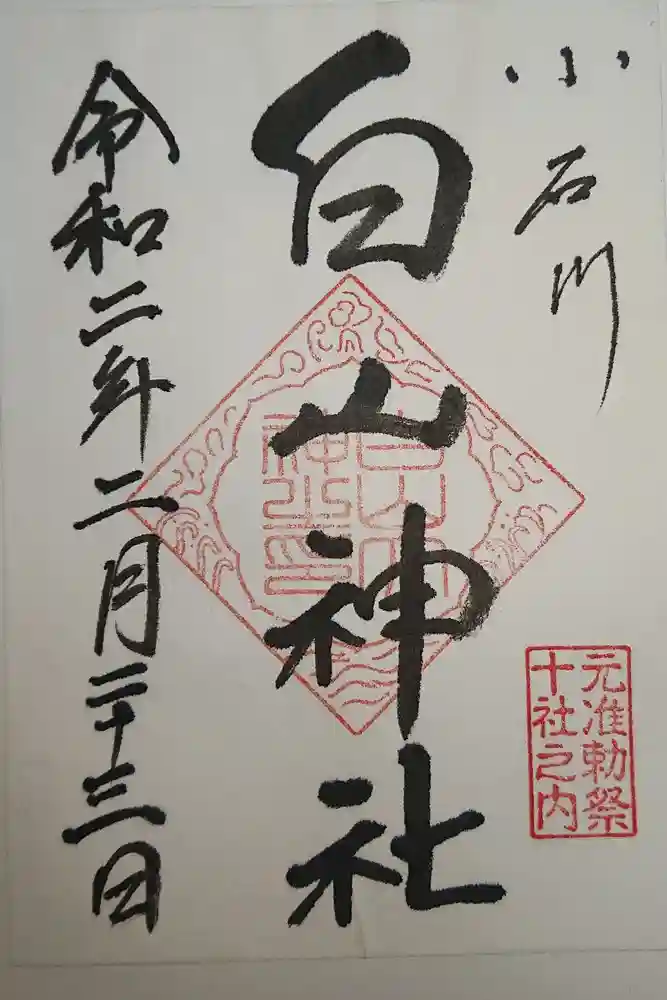 小石川
白山神社
令和二年二月二十三日
元准勅祭
十社之内